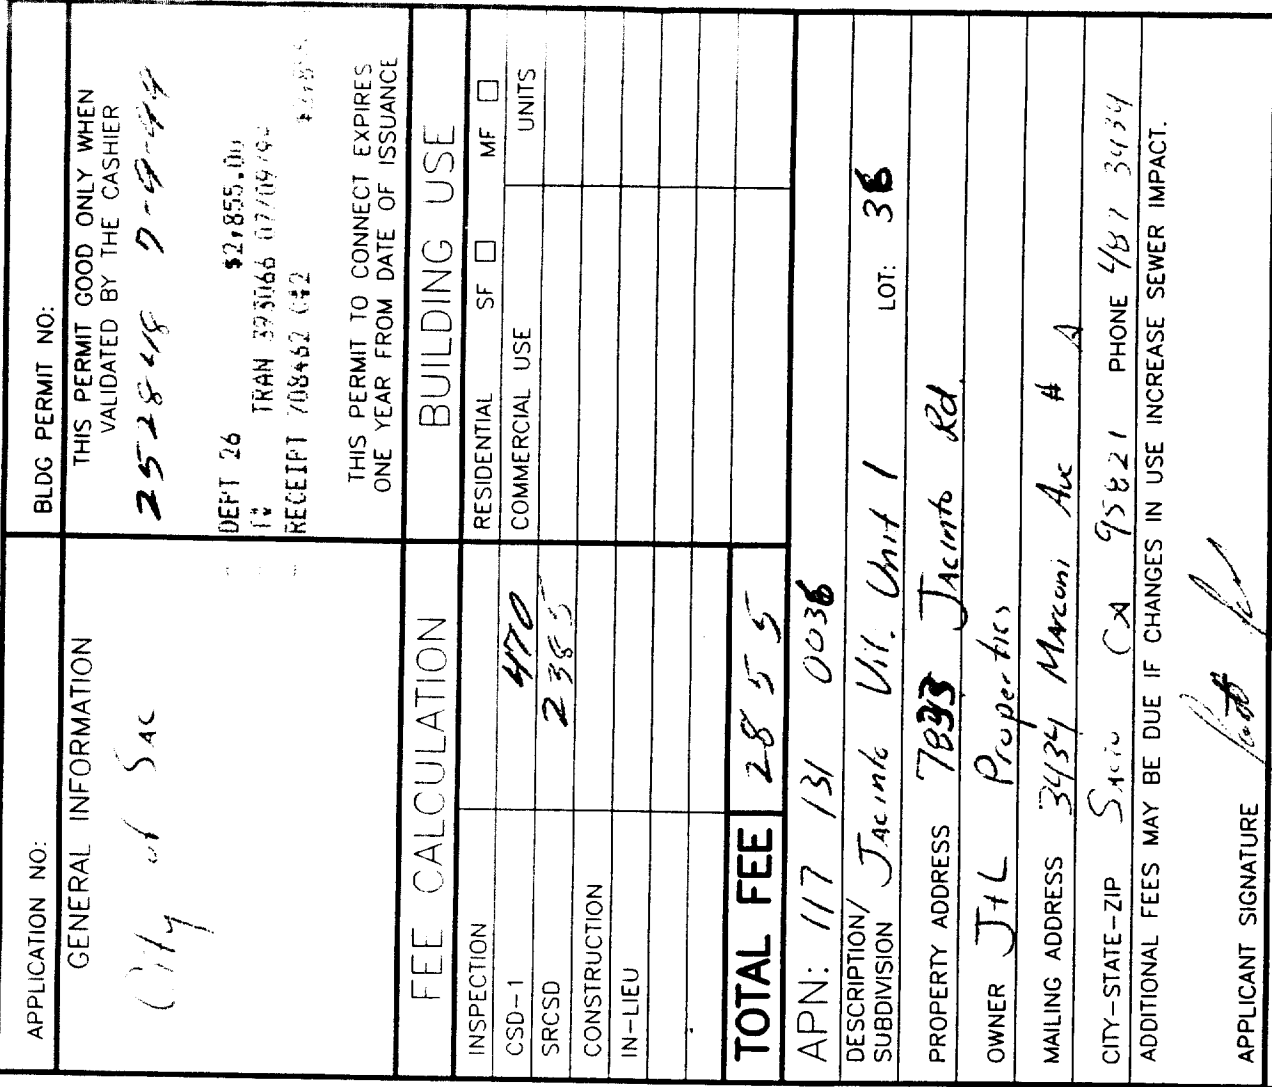 APPLICATION NO:
BLDG PERMIT NO:
GENERAL INFORMATION
City of SAC
THIS PERMIT GOOD ONLY WHEN
VALIDATED BY THE CASHIER
252848 7-9-94
DEPT 26 $2,855.00
TRAN 393066 07/09/94
RECEIPT 708462 C#2
THIS PERMIT TO CONNECT EXPIRES
ONE YEAR FROM DATE OF ISSUANCE
FEE CALCULATION
BUILDING USE
INSPECTION
RESIDENTIAL SF □ MF □
CSD-1 470
COMMERCIAL USE UNITS
SRCSD 2385
CONSTRUCTION
IN-LIEU
TOTAL FEE 2855
APN: 117 131 0036
DESCRIPTION/
SUBDIVISION Jacinto Vil. Unit 1 LOT: 36
PROPERTY ADDRESS Jacinto Rd.
OWNER J+L Properties
MAILING ADDRESS 3434 Marconi Ave # A
CITY-STATE-ZIP CA 95821 PHONE 487 3434
ADDITIONAL FEES MAY BE DUE IF CHANGES IN USE INCREASE SEWER IMPACT.
APPLICANT SIGNATURE